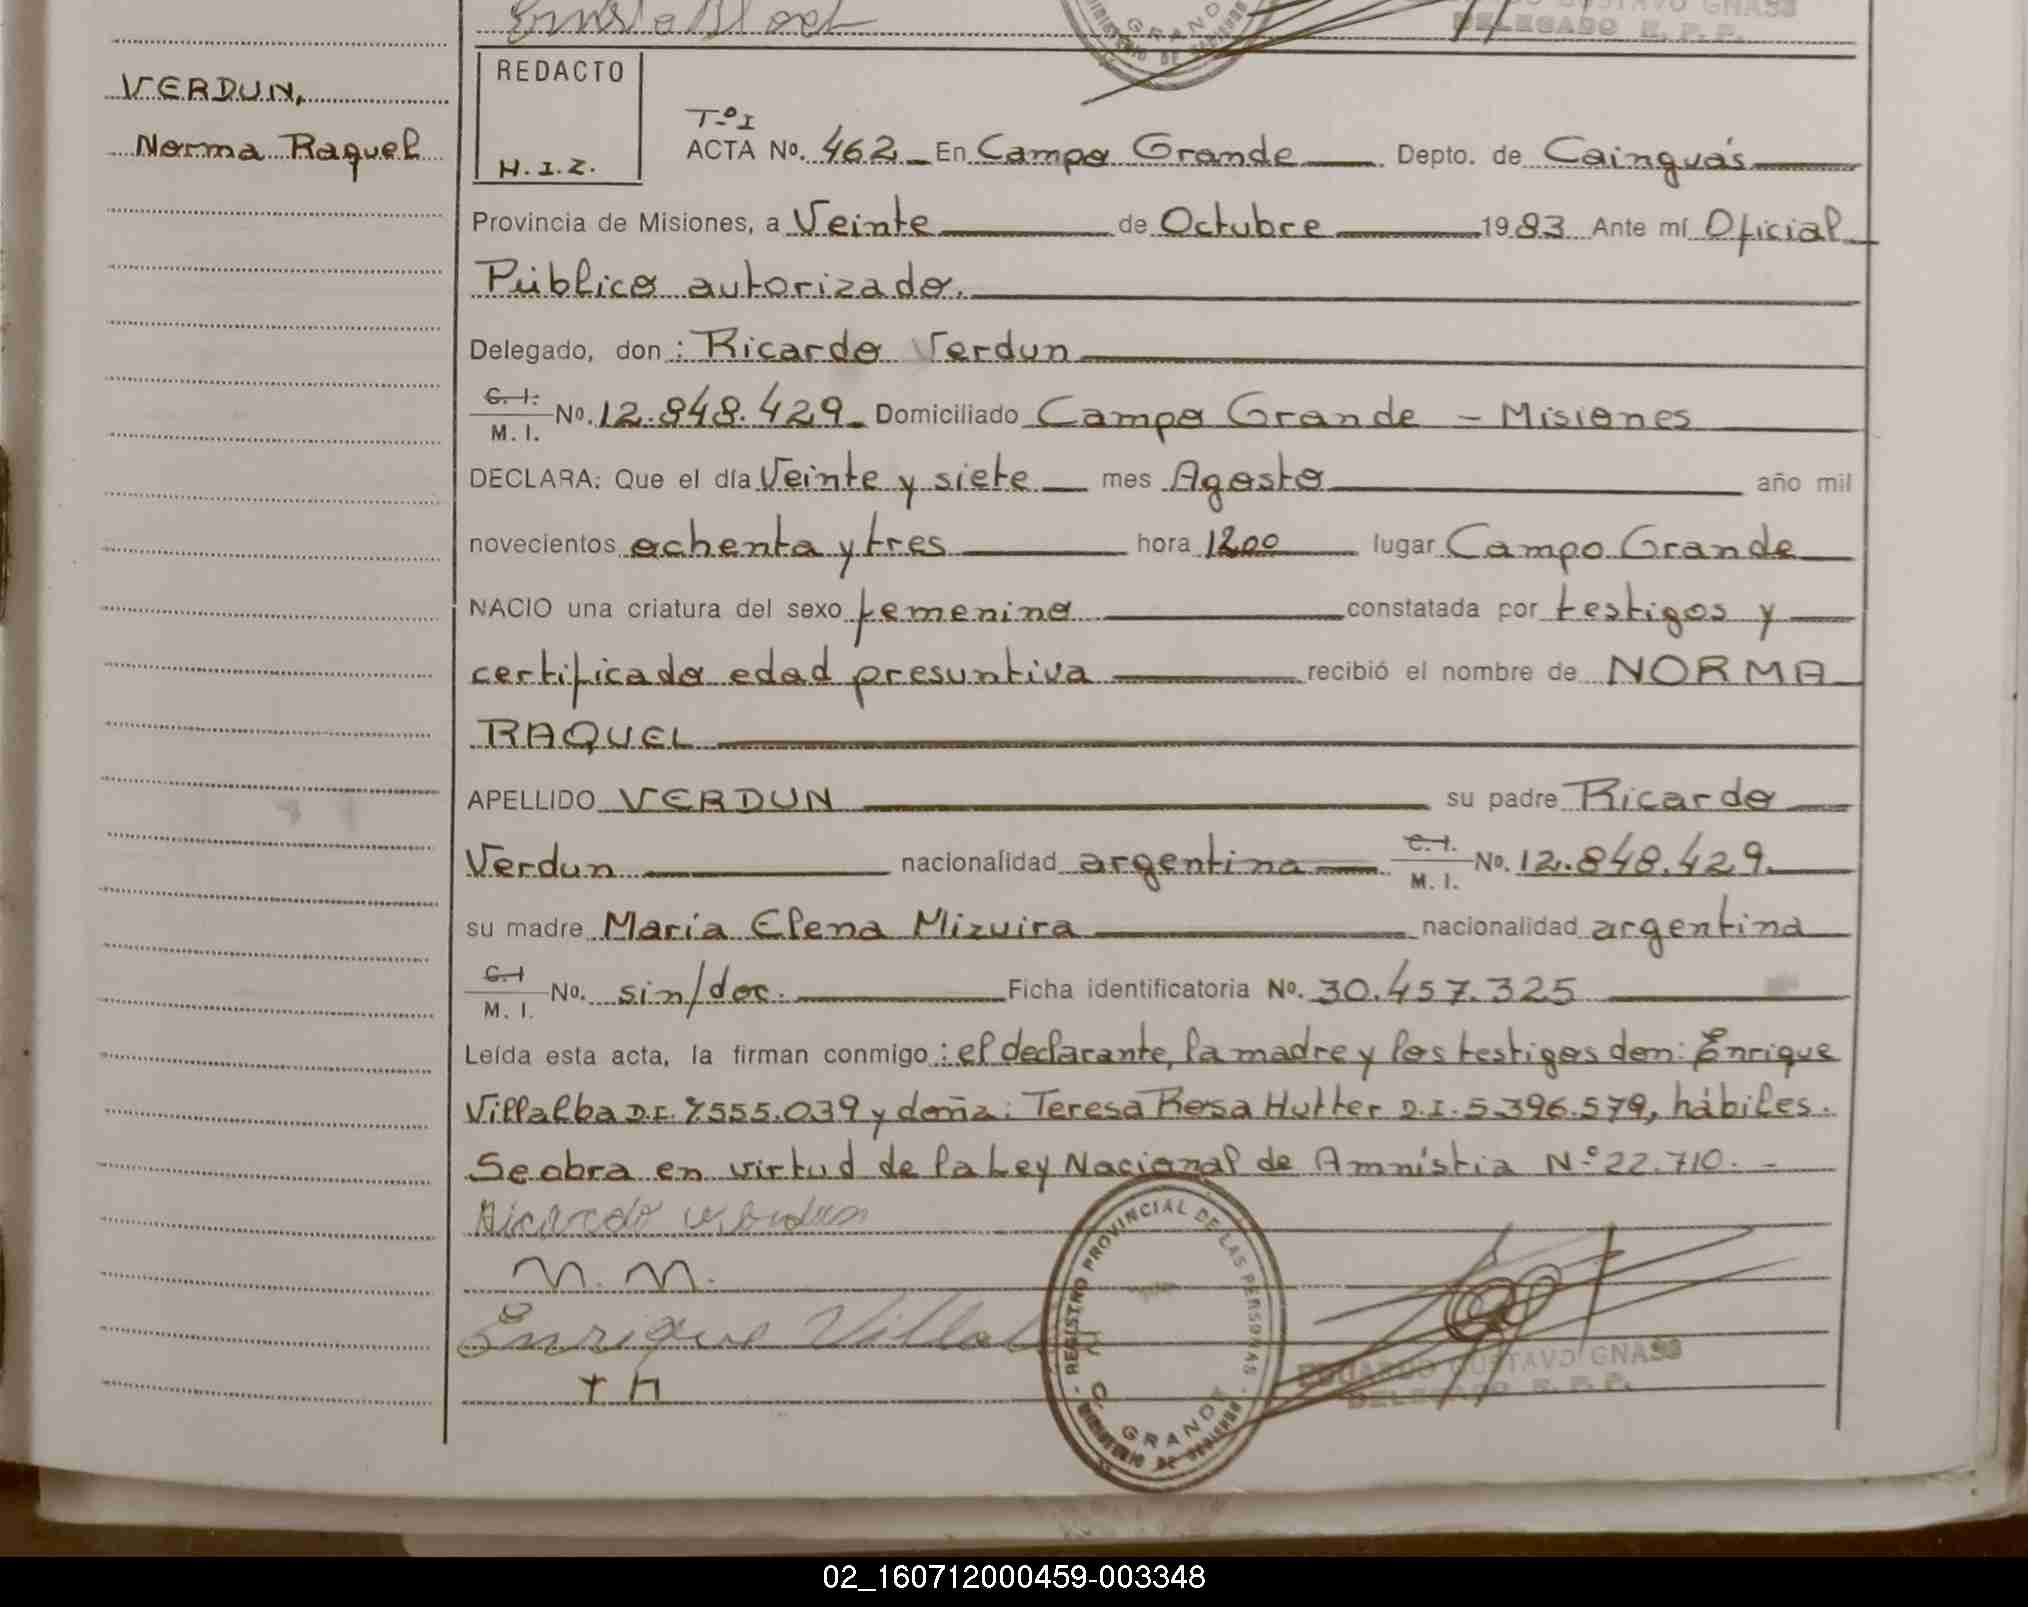 GUSTAVO GNASS
DELEGADO E. P. P.
GRANDE
VERDUN,
Norma Raquel
REDACTO
H.I.Z.
Tº I
ACTA Nº. 462 En Campo Grande Depto. de Cainguás
Provincia de Misiones, a Veinte de Octubre 1983 Ante mí Oficial
Público autorizado.
Delegado, don: Ricardo Verdun
C. I. / M. I. Nº. 12.848.429 Domiciliado Campo Grande - Misiones
DECLARA: Que el día Veinte y siete mes Agosto año mil
novecientos ochenta y tres hora 1200 lugar Campo Grande
NACIO una criatura del sexo femenino constatada por testigos y
certificado edad presuntiva recibió el nombre de NORMA
RAQUEL
APELLIDO VERDUN su padre Ricardo
Verdun nacionalidad argentina C. I. / M. I. Nº. 12.848.429
su madre María Elena Mizuira nacionalidad argentina
C. I / M. I. Nº. sin/doc. Ficha identificatoria Nº. 30.457.325
Leída esta acta, la firman conmigo: el declarante, la madre y los testigos don: Enrique
Villalba D.I. 7.555.039 y doña: Teresa Rosa Hutter D.I. 5.396.579, hábiles.
Se obra en virtud de la Ley Nacional de Amnistia Nº 22.710. -
Ricardo verdun
M. M.
Enrique Villalba
T H
REGISTRO PROVINCIAL DE LAS PERSONAS
C. GRANDE
MINISTERIO DE GOBIERNO
EDUARDO GUSTAVO GNASS
DELEGADO E. P. P.
02_160712000459-003348